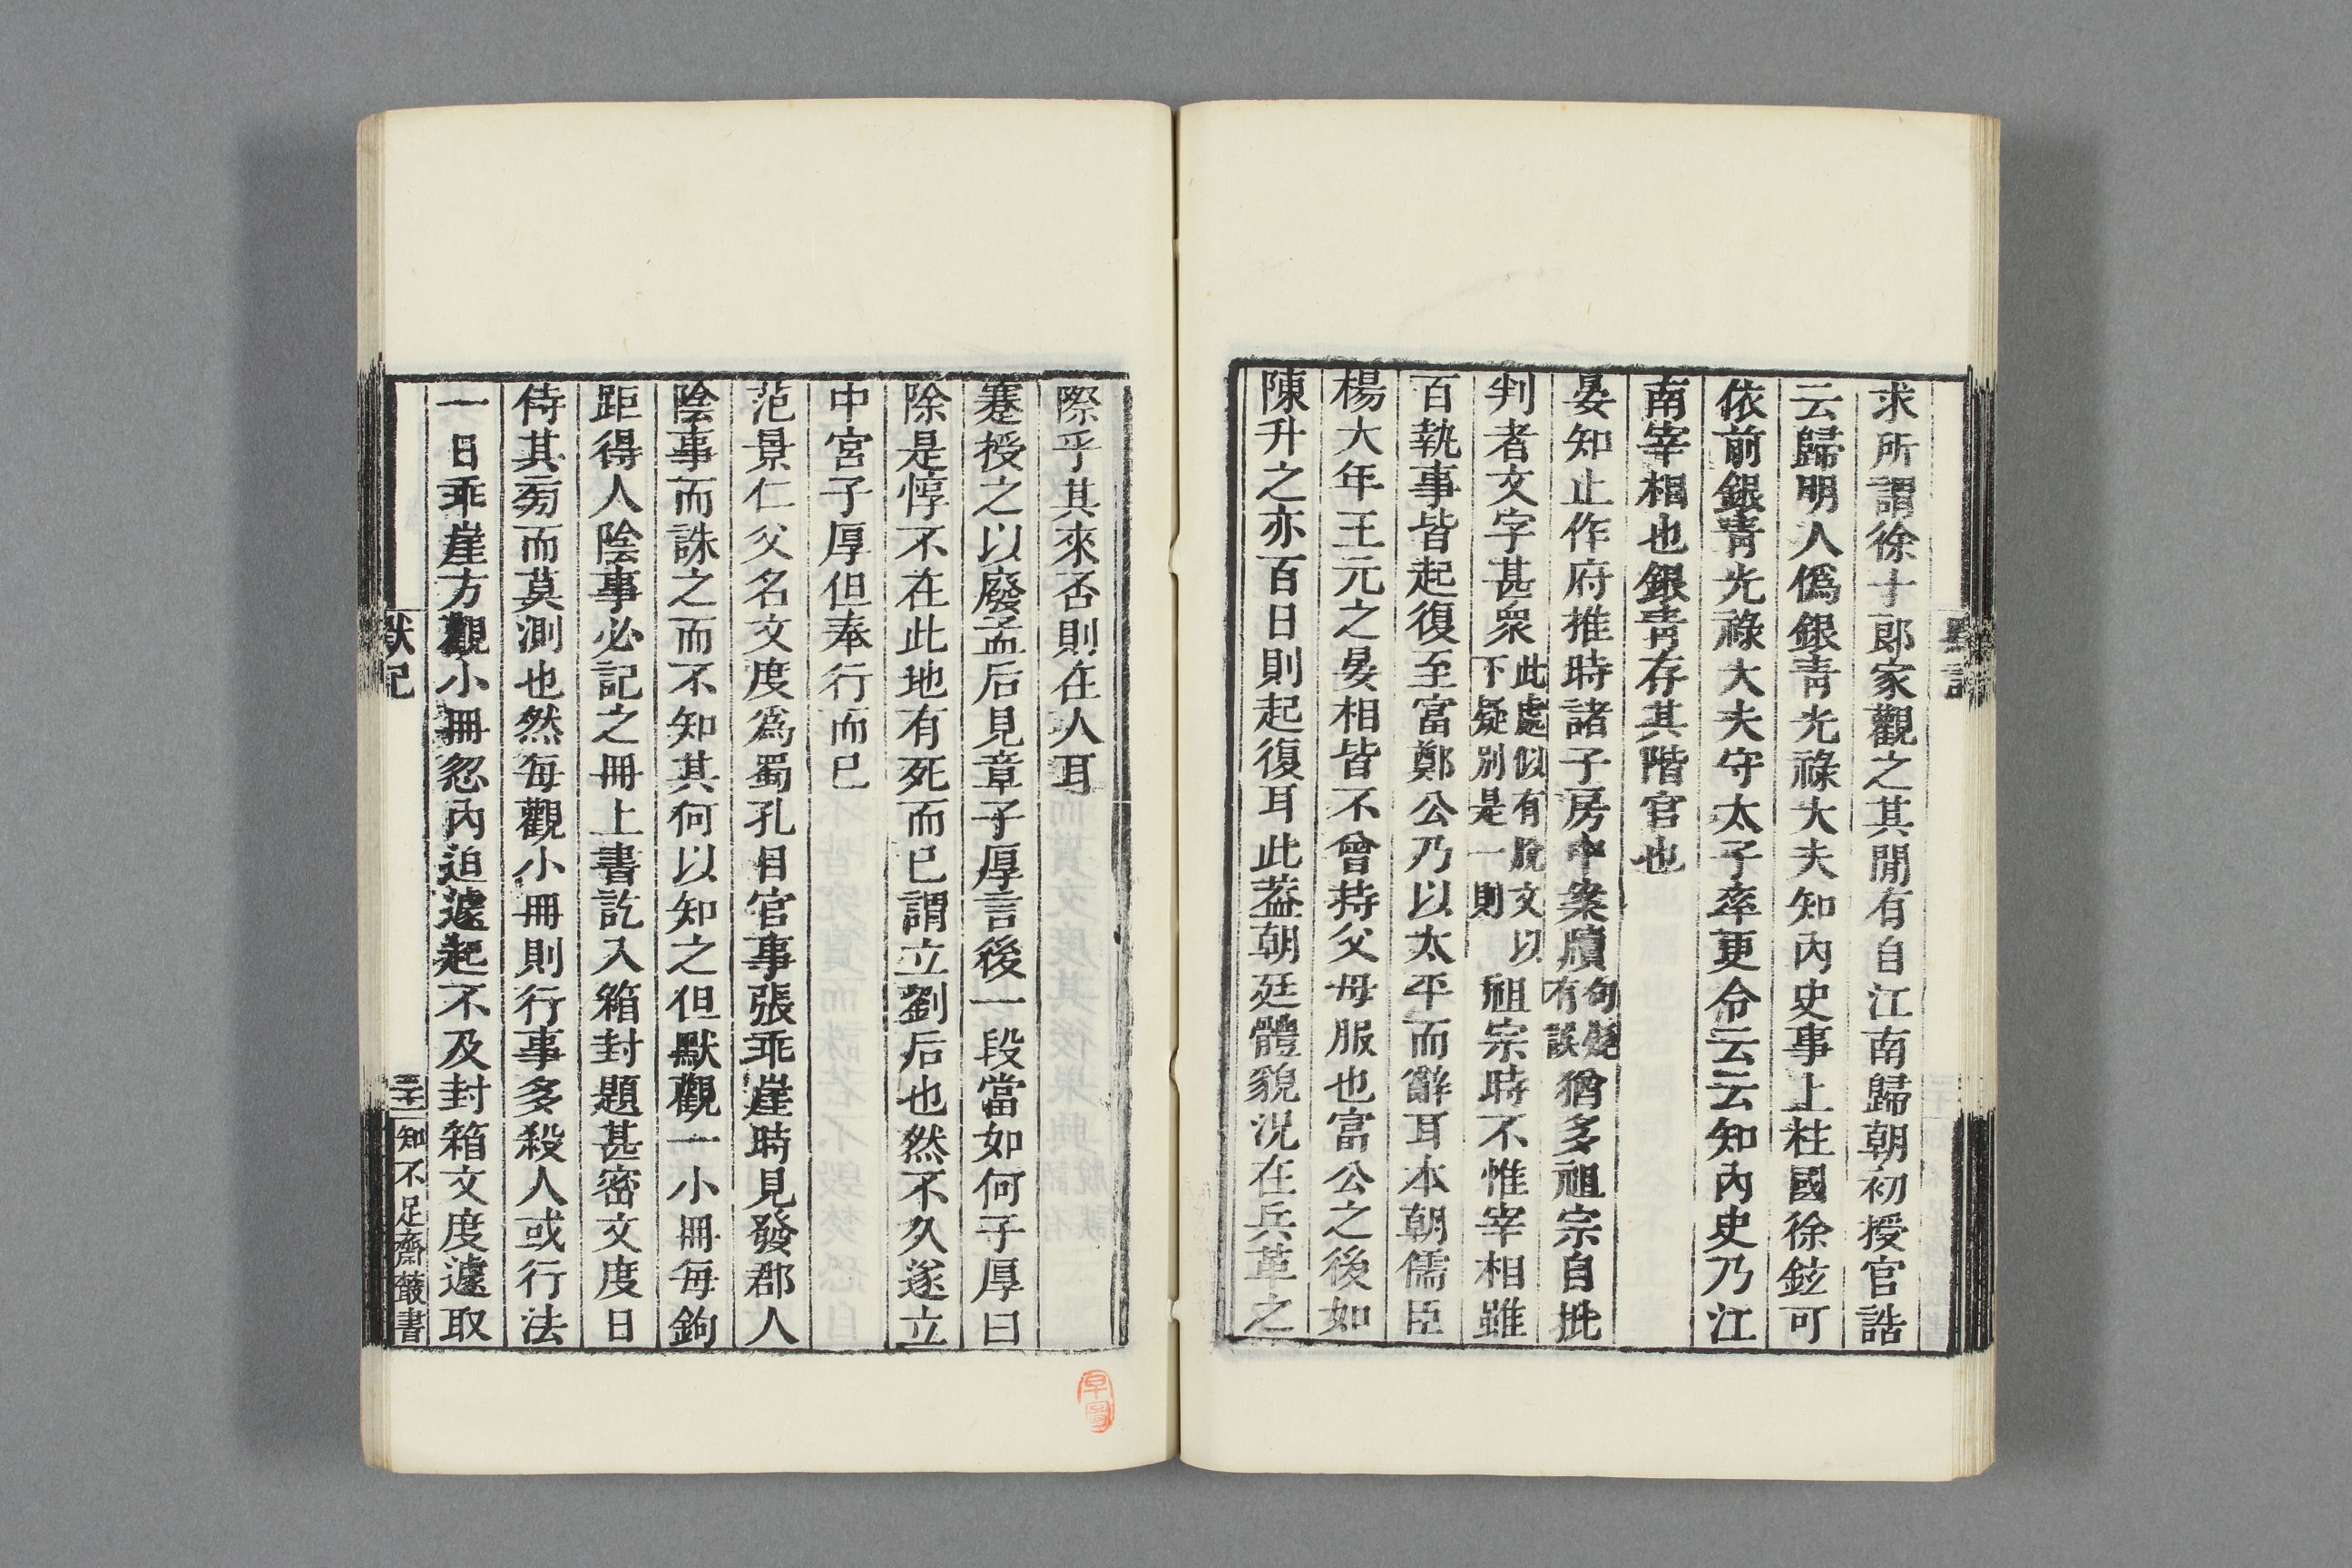 求所謂徐十郎家觀之其閒有自江南歸朝初授官誥
云歸明人僞銀青光祿大夫知內史事上柱國徐鉉可
依前銀青光祿大夫守太子率更令云云知內史乃江
南宰相也銀青存其階官也
晏知止作府推時諸子房中案牘句疑有誤猶多祖宗自批
判者文字甚衆此處似有脫文以下疑別是一則祖宗時不惟宰相雖
百執事皆起復至富鄭公乃以太平而辭耳本朝儒臣
楊大年王元之晏相皆不曾持父母服也富公之後如
陳升之亦百日則起復耳此葢朝廷體貌況在兵革之
際乎其來否則在人耳
蹇授之以廢孟后見章子厚言後一段當如何子厚曰
除是惇不在此地有死而已謂立劉后也然不久遂立
中宮子厚但奉行而已
范景仁父名文度爲蜀孔目官事張乖崖時見發郡人
陰事而誅之而不知其何以知之但默觀一小冊每鉤
距得人陰事必記之冊上書訖入箱封題甚密文度日
侍其旁而莫測也然每觀小冊則行事多殺人或行法
一日乖崖方觀小冊忽內迫遽起不及封箱文度遽取
默記
知不足齋叢書